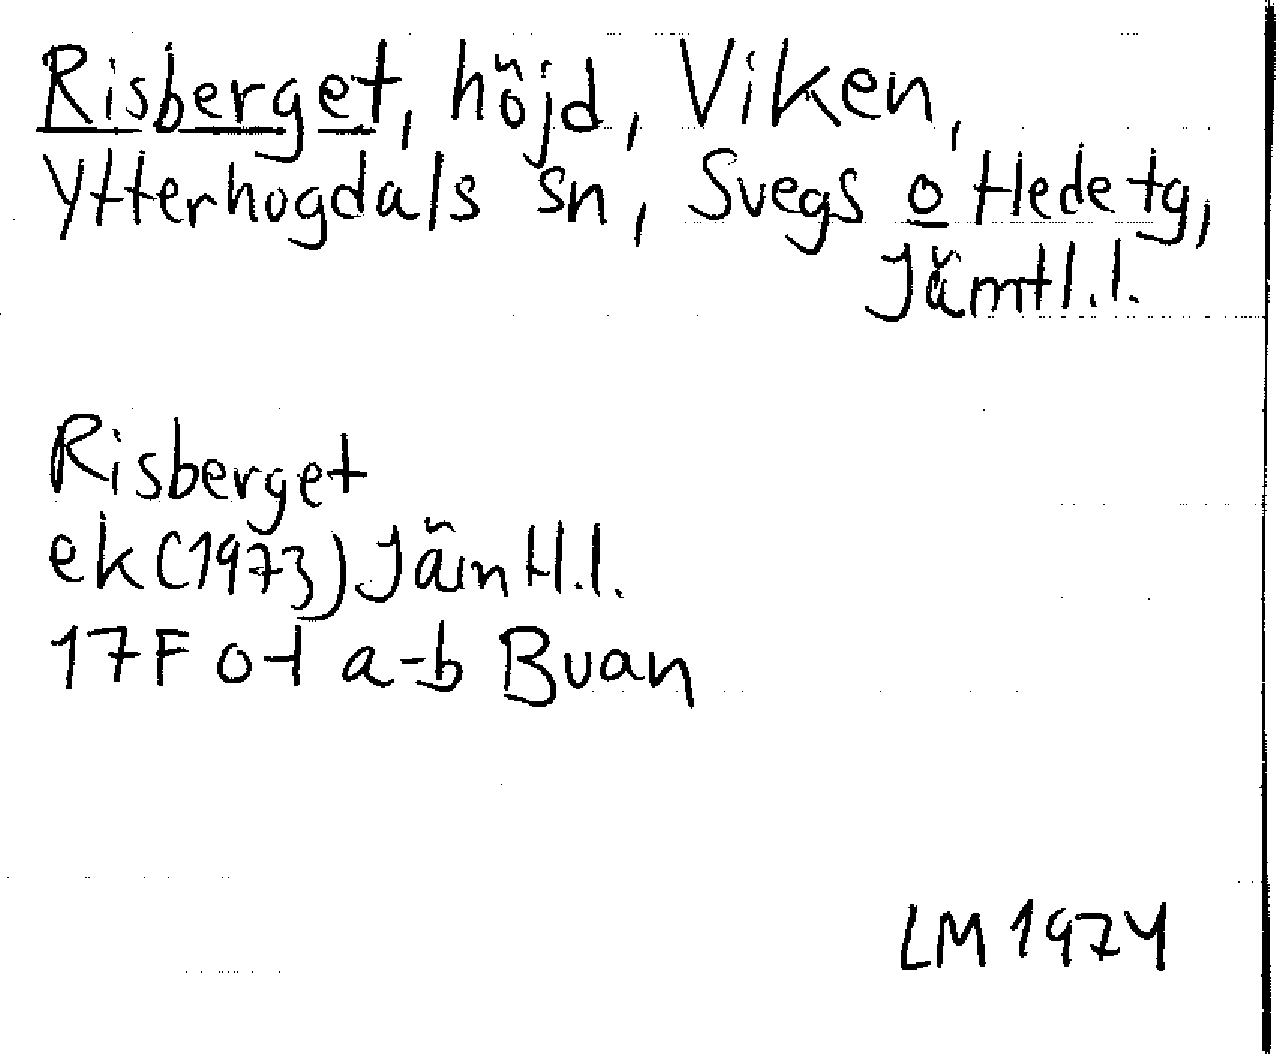 Risberget, höjd, Viken,
Ytterhogdals sn, Svegs o Hede tg,
Jämtl.l.
Risberget
ek (1973) Jämtl.l.
17F 0-1 a-b Buan
LM 1974